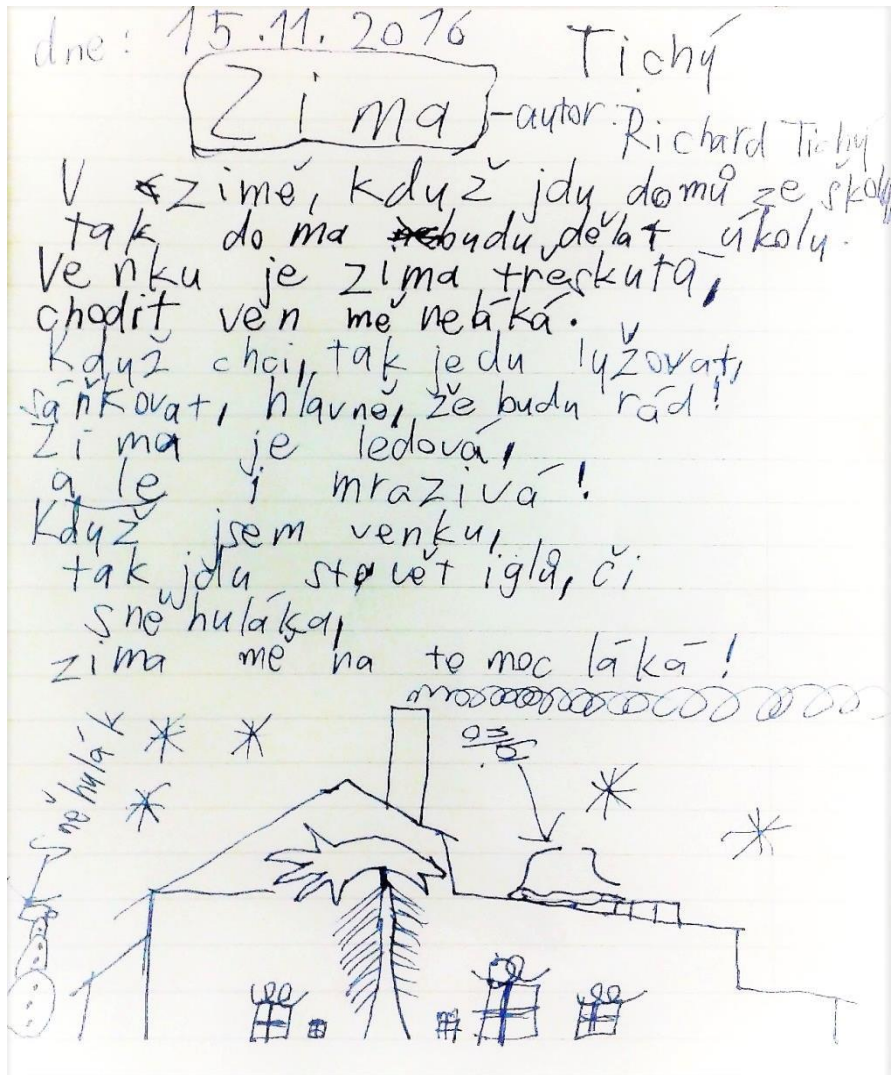 dne: 15.11.2016 Tichý
Zima -autor: Richard Tichý
V zimě, když jdy domů ze školy
tak doma budu dělat úkoly.
Venku je zima třeskutá,
chodit ven mě neláká.
Když chci, tak jedu lyžovat,
sáňkovat, hlavně, že budu rád!
Zima je ledová,
ale i mrazivá!
Když jsem venku,
tak jdu stavět iglů, či
sněhuláka,
zima mě na to moc láká!
Sněhulák